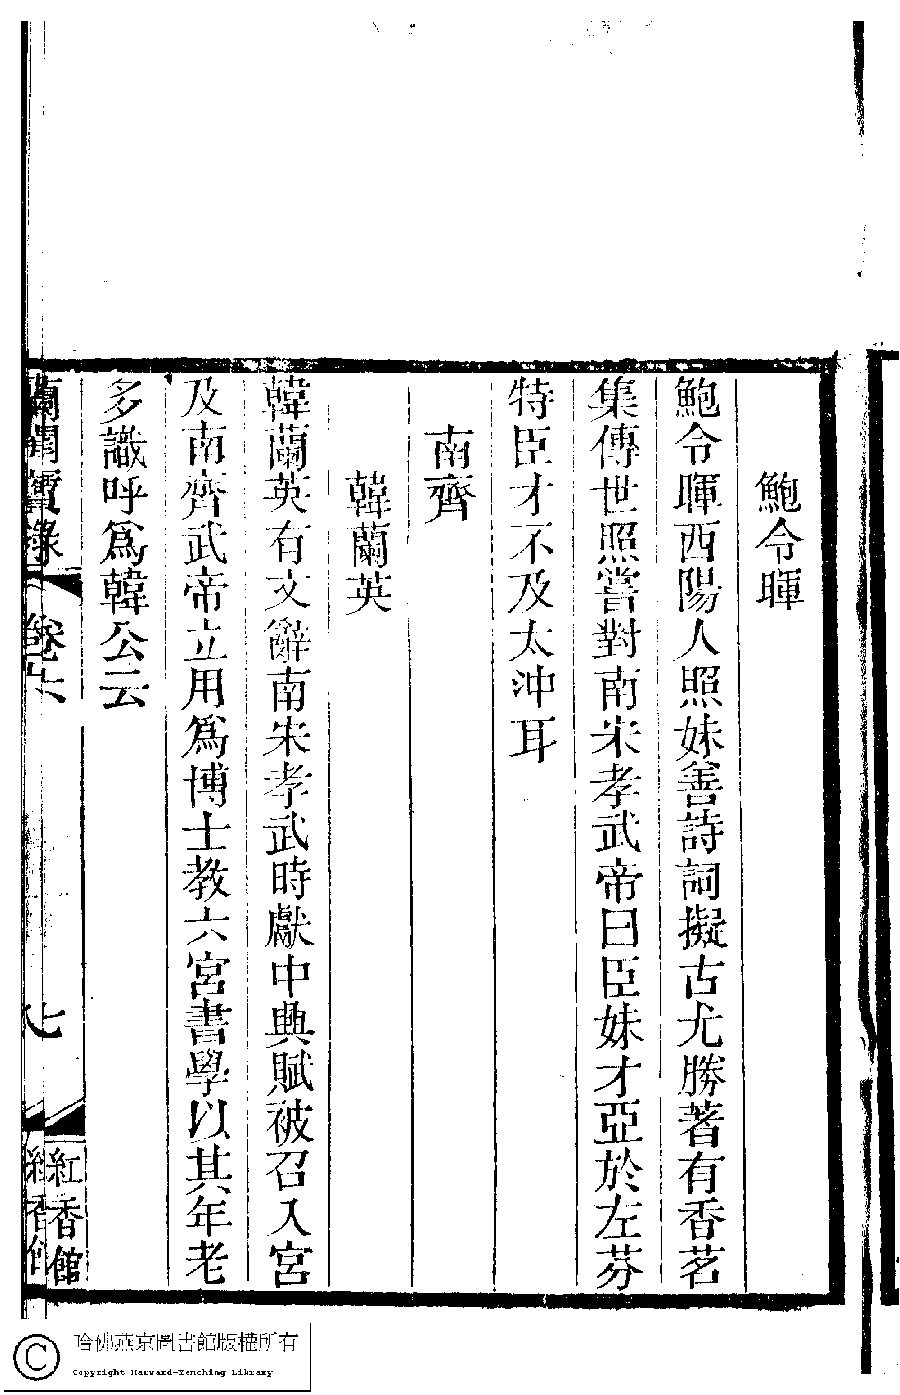 鮑令暉
鮑令暉西陽人照妹善詩詞擬古尤勝著有香茗
集傳世照嘗對南宋孝武帝曰臣妹才亞於左芬
特臣才不及太沖耳
南齊
韓蘭英
韓蘭英有文辭南宋孝武時獻中興賦被召入宮
及南齊武帝立用爲博士教六宮書學以其年老
多識呼爲韓公云
蘭閨寶錄 卷六 七 紅香館
哈佛燕京圖書館版權所有
Copyright Harvard-Yenching Library